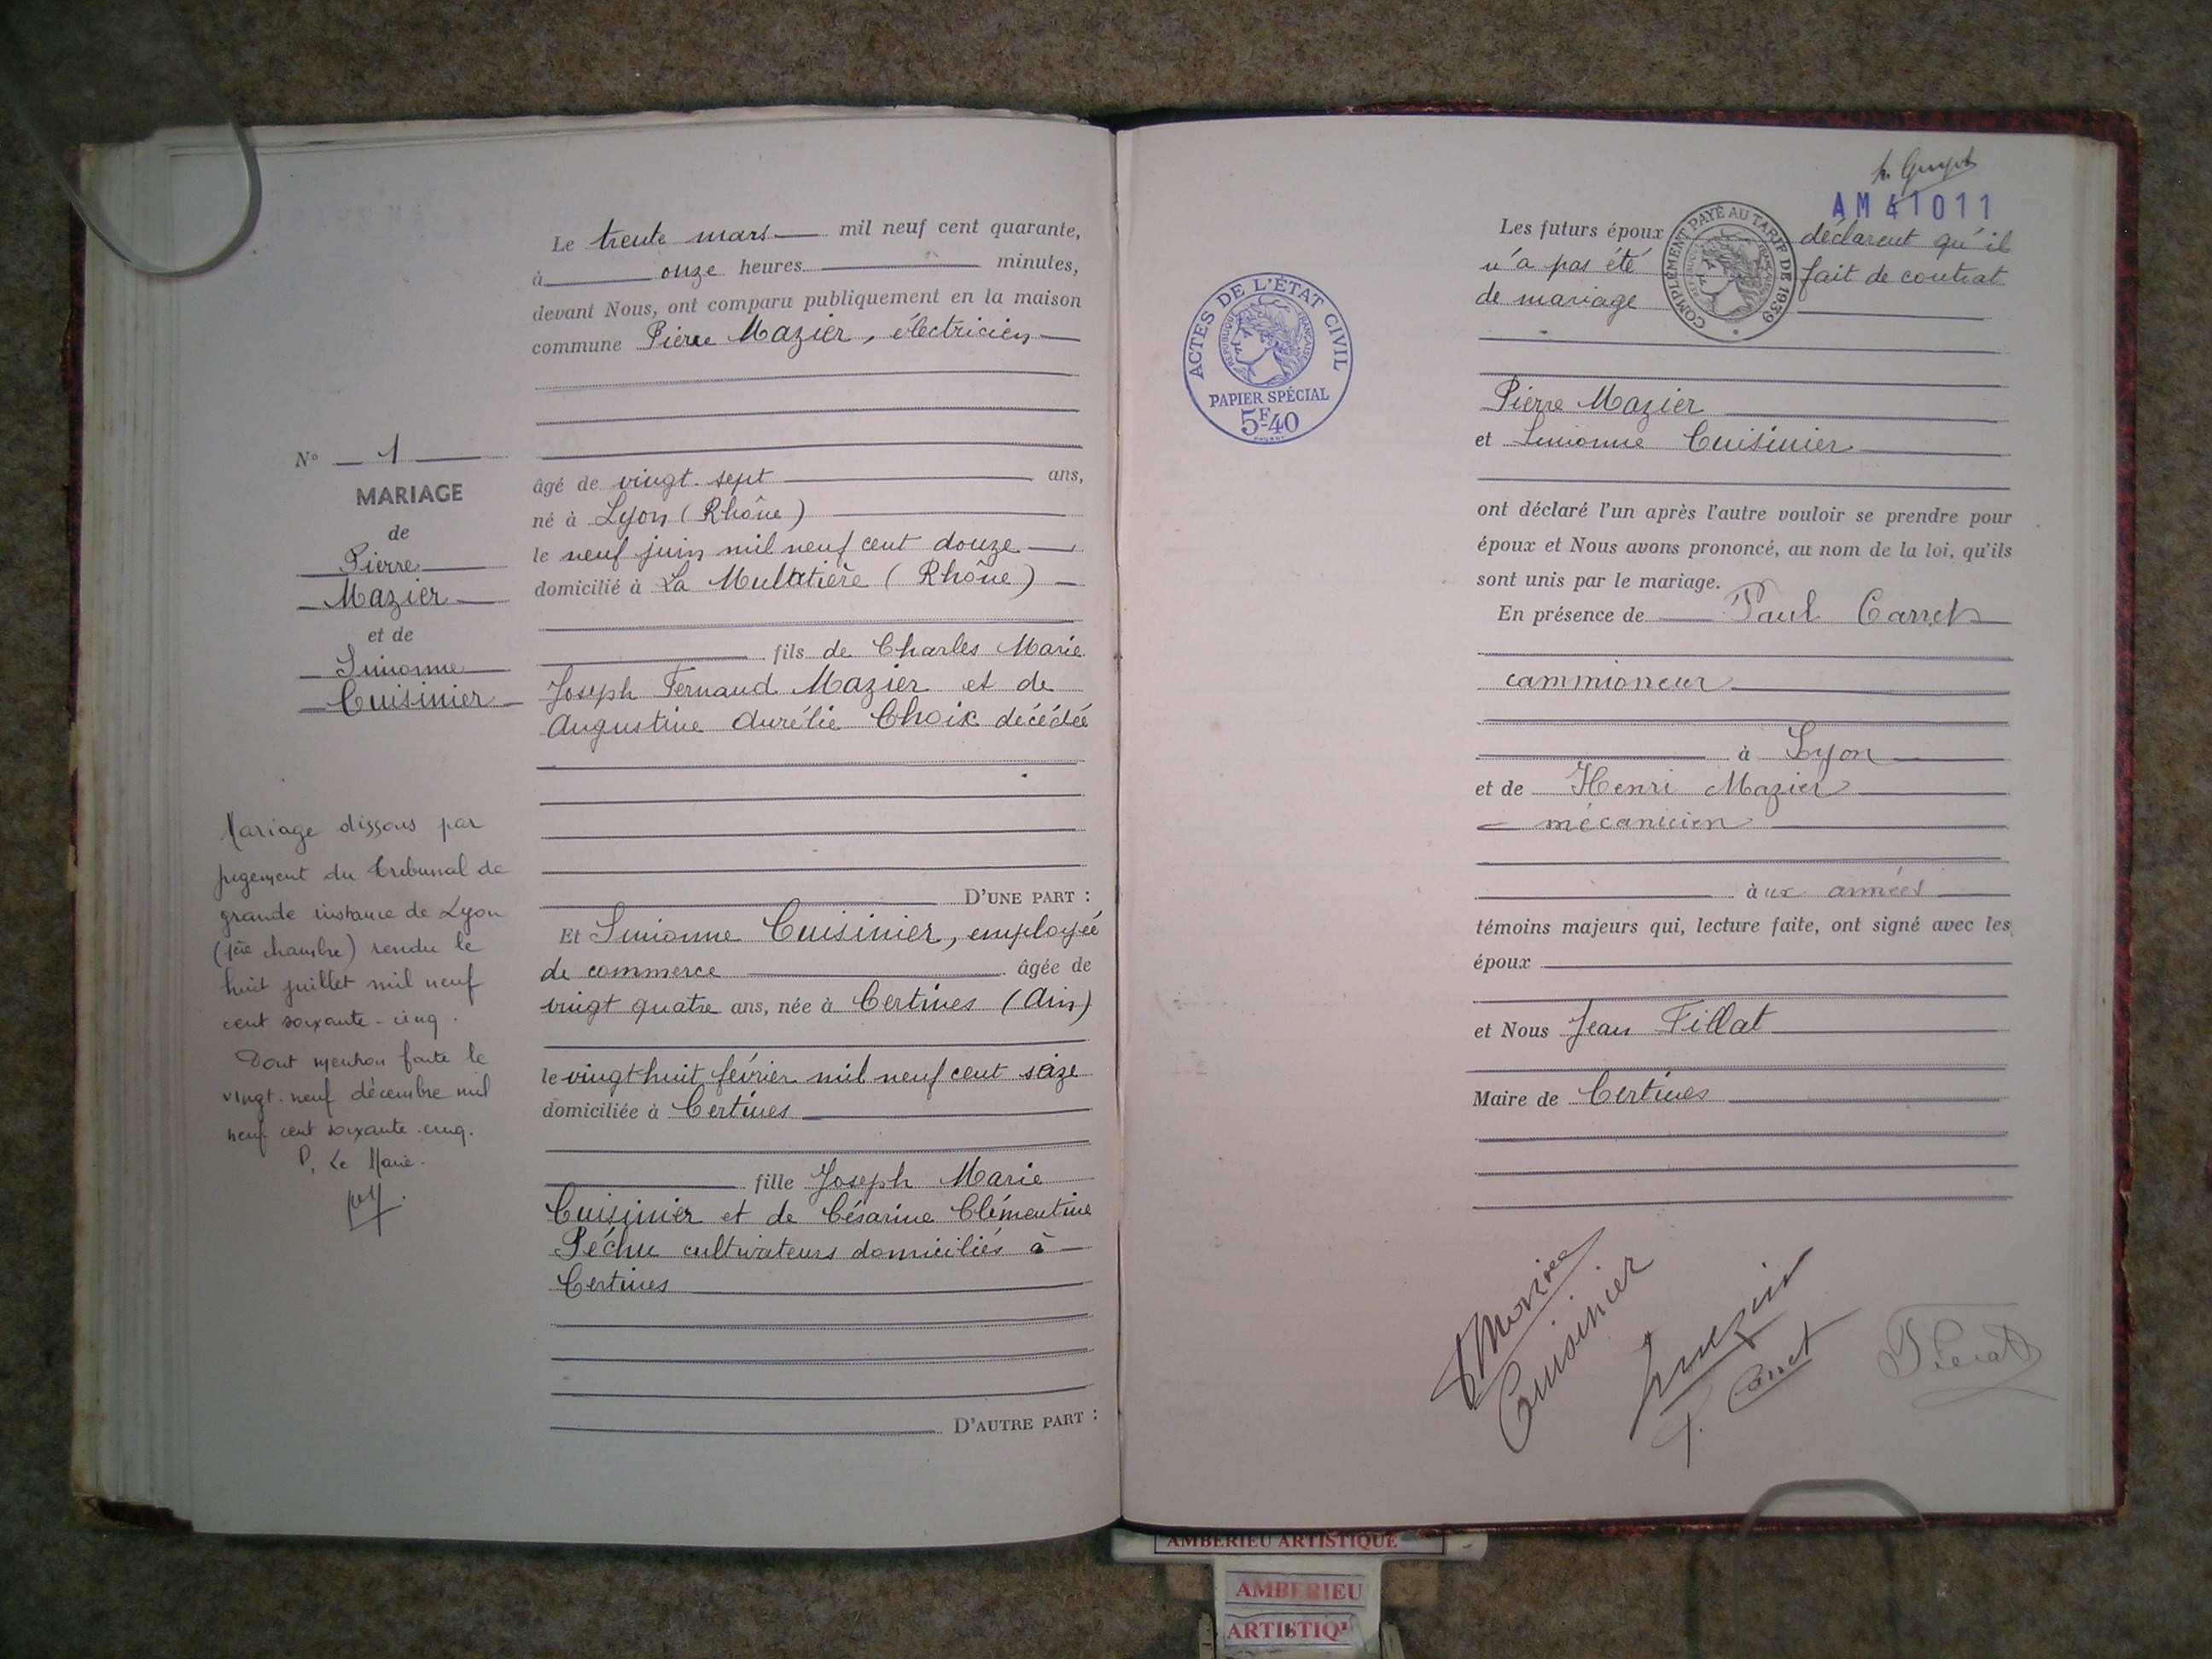 N° 1
MARIAGE
de
Pierre
Mazier
et de
Simonne
Cuisinier
Mariage dissous par
jugement du Tribunal de
grande instance de Lyon
(1ère chambre) rendu le
huit juillet mil neuf
cent soixante-cinq.
Dont mention faite le
vingt-neuf décembre mil
neuf cent soixante-cinq.
P. Le Maire.
Le trente mars mil neuf cent quarante,
à onze heures minutes,
devant Nous, ont comparu publiquement en la maison
commune Pierre Mazier, électricien
âgé de vingt-sept ans,
né à Lyon (Rhône)
le neuf juin mil neuf cent douze
domicilié à La Mulatière (Rhône)
fils de Charles Marie
Joseph Fernand Mazier et de
Augustine Aurélie Choix décédée
D'UNE PART :
Et Simonne Cuisinier, employée
de commerce âgée de
vingt quatre ans, née à Certines (Ain)
le vingt huit février mil neuf cent seize
domiciliée à Certines
fille Joseph Marie
Cuisinier et de Césarine Clémentine
Péchu cultivateurs domiciliés à
Certines
D'AUTRE PART :
ACTES DE L'ÉTAT CIVIL
RÉPUBLIQUE FRANÇAISE
PAPIER SPÉCIAL
5F40
AM 41011
COMPLÉMENT PAYÉ AU TARIF DE 1939
Les futurs époux déclarent qu'il
n'a pas été fait de contrat
de mariage
Pierre Mazier
et Simonne Cuisinier
ont déclaré l'un après l'autre vouloir se prendre pour
époux et Nous avons prononcé, au nom de la loi, qu'ils
sont unis par le mariage.
En présence de Paul Carret
cammioneur
à Lyon
et de Henri Mazier
mécanicien
aux armées
témoins majeurs qui, lecture faite, ont signé avec les
époux
et Nous Jean Fillat
Maire de Certines
Cuisinier
P. Carret
AMBERIEU ARTISTIQUE
AMBERIEU
ARTISTIQ